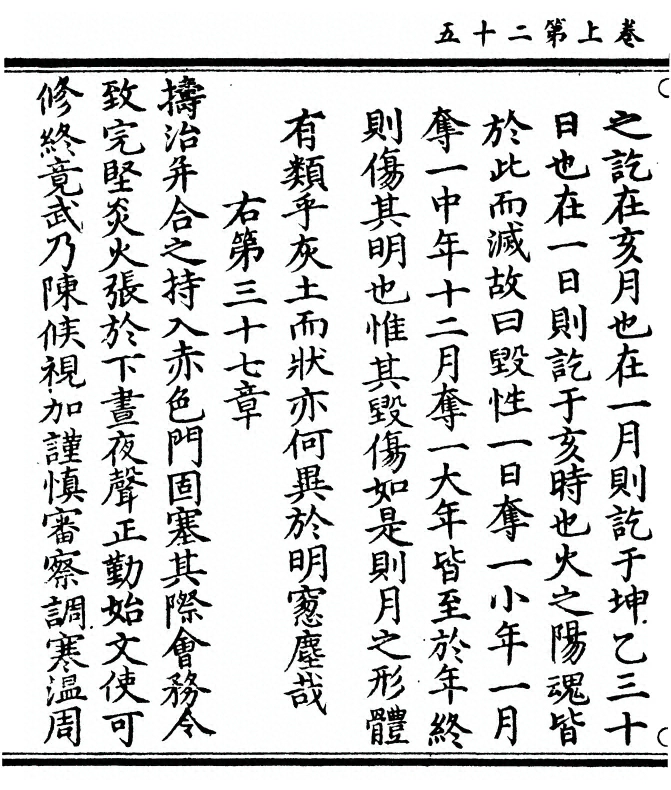 卷上第二十五
之訖在亥月也在一月則訖于坤乙三十
日也在一日則訖于亥時也火之陽魂皆
於此而滅故曰毀性一日奪一小年一月
奪一中年十二月奪一大年皆至於年終
則傷其明也惟其毀傷如是則月之形體
有類乎灰土而狀亦何異於明窻塵哉
右第三十七章
擣治并合之持入赤色門固塞其際會務令
致完堅炎火張於下晝夜聲正勤始文使可
修終竟武乃陳候視加謹慎審察調寒溫周